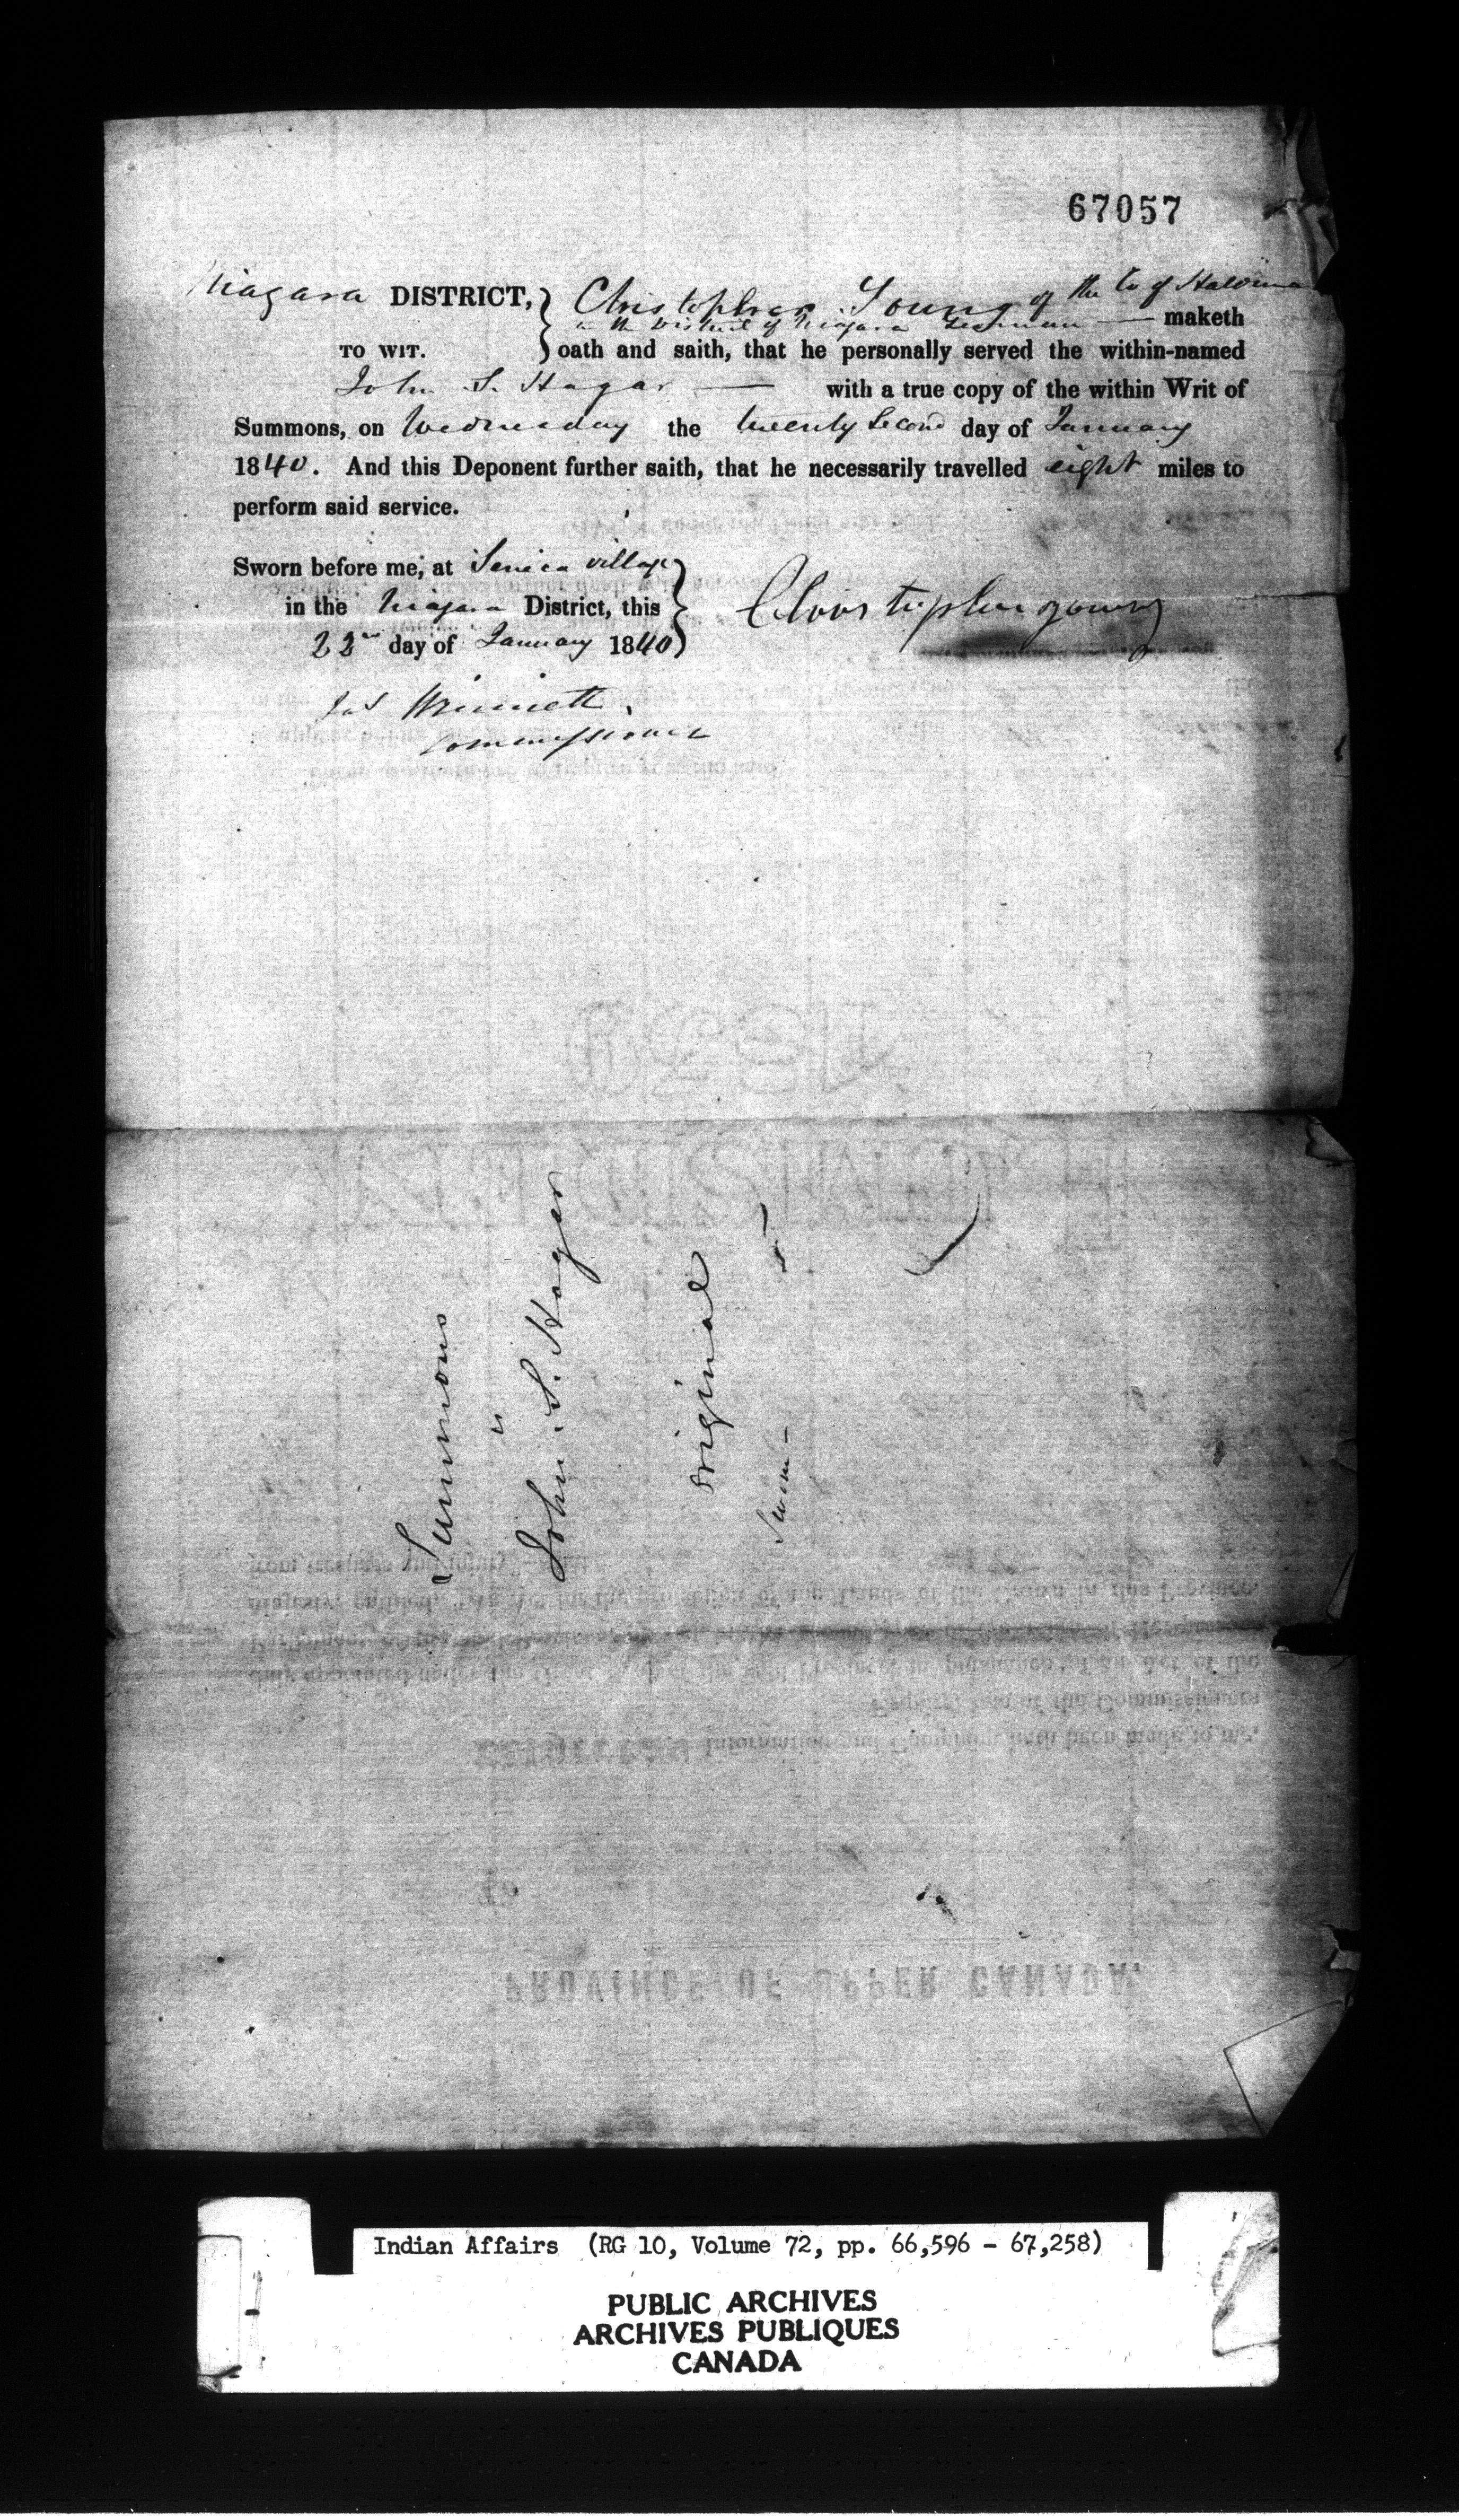 67057
Niagara DISTRICT, Christopher Young of the Co of Haldimand
in the District of Niagara Yeoman — maketh
TO WIT. oath and saith, that he personally served the within-named
John S. Hagar — with a true copy of the within Writ of
Summons, on Wednesday the twenty second day of January
1840. And this Deponent further saith, that he necessarily travelled eight miles to
perform said service.
Sworn before me, at Seneca village
in the Niagara District, this
22nd day of January 1840
Christopher young
Jas Winniett
Commissioner
Summons
"
John S. Hagar
original
Sworn -
PROVINCE OF UPPER CANADA,
Indian Affairs (RG 10, Volume 72, pp. 66,596 - 67,258)
PUBLIC ARCHIVES
ARCHIVES PUBLIQUES
CANADA